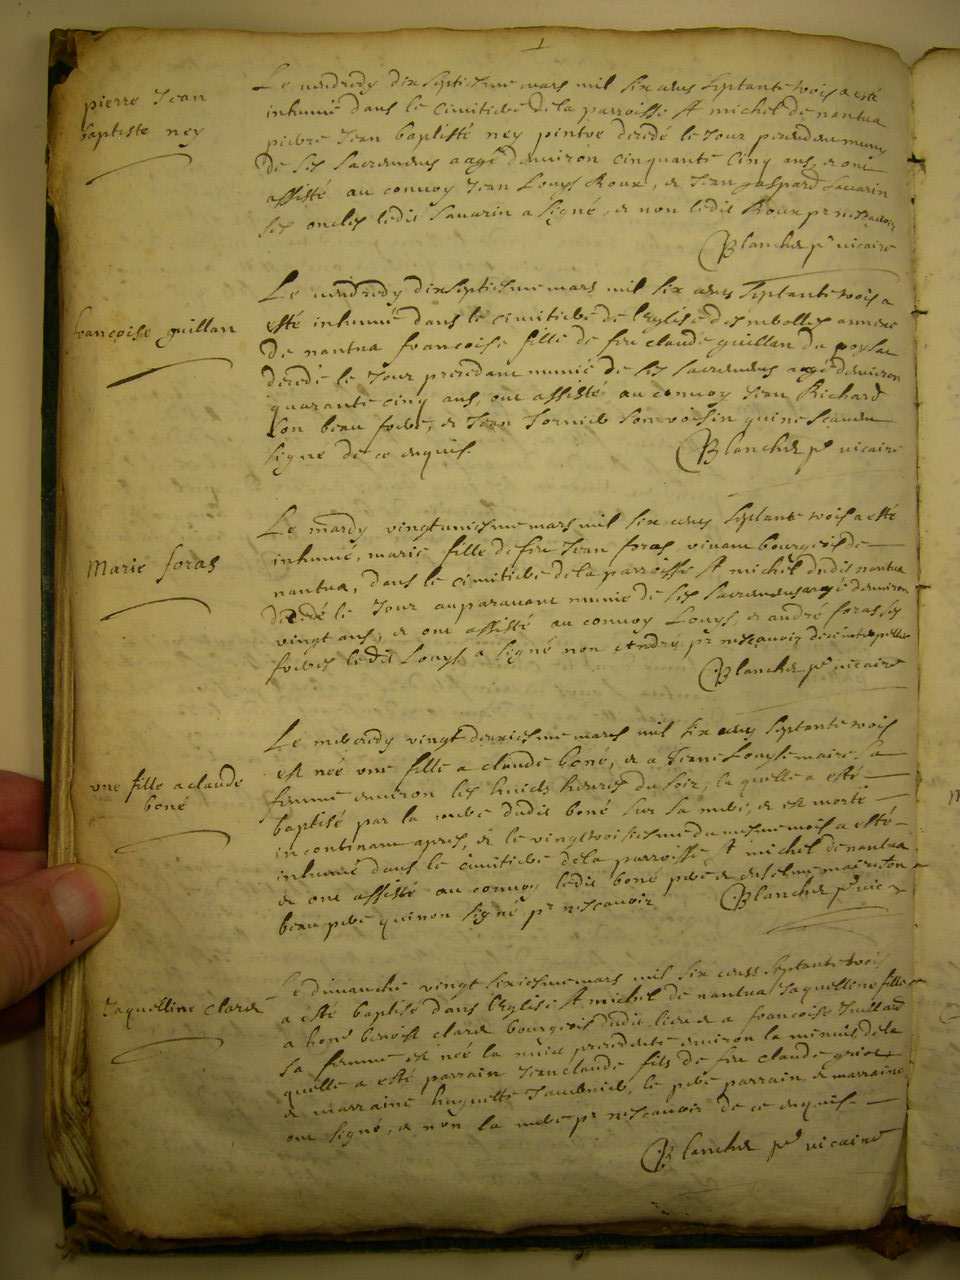 1
pierre Jean
baptiste ney
Le vendredy dixseptiesme mars mil six cens septante trois a esté
inhumé dans le cimitiere de la parroisse St michel de nantua
pierre Jean baptiste ney pintre decedé le Jour precedant muny
de ses sacremens aagé d'environ cinquante cinq ans, & ont
assisté au convoy Jean Louys Roux, & Jean gaspard Savarin
ses oncles ledit Savarin a signé, & non ledit Roux pr ne scavoir
Blanchet pb vicaire
francoise guillan
Le vendredy dixseptiesme mars mil six cens septante trois a
esté inhumé dans le cimitiere de l'Eglise des annexe
de nantua francoise fille de feu claude guillan du
decedé le Jour precedant munie de ses sacremens agé d'environ
quarante cinq ans, ont assisté au convoy Jean Richard
son beau frere, & Jean Tornier son voisin qui ne scavent
signe de ce enquis. Blanchet pb vicaire
Marie foras
Le mardy vingtuniesme mars mil six cens septante trois a esté
inhumé, marie fille de feu Jean foras, vivant bourgeois de
nantua, dans le cimitiere de la parroisse St michel dudit nantua
decedé le Jour auparavant munie de ses sacremens agé d'environ
vingt ans, & ont assisté au convoy Louys, & andré foras, ses
freres ledit Louys a signé non Andre, pr ne scavoir de ce interpelle
Blanchet pb vicaire
une fille a claude
boné
Le mercredy vingt deuxiesme mars mil six cens septante trois
est née une fille a claude boné, & a Jeane Louyse maire sa
femme environ les huict heures du soir, la quelle a esté
baptisé par la mere dudit boné sur sa mere, & est morte
incontinant apres, & le vingttroisiesme du mesme mois a esté
inhumé dans le cimitiere de la parroisse St michel de nantua
& ont assisté au convoy ledit boné pere & anselme maire son
beau pere qui non signé pr ne scavoir Blanchet pb vic
Jaquelline claret
Le dimanche vingt sixiesme mars mil six cens septante trois
a esté baptisé dans l'Eglise St michel de nantua Jaquelline fille
a honé benoist claret bourgeois dudit lieu & a francoise Juillard
sa femme est née la nuict precedente environ la minuit de la
quelle a esté parrain Jean claude fils de feu claude
& marraine huguette le pere parrain & marraine
ont signé, & non la mere pr ne scavoir de ce enquise
Blanchet pb vicaire